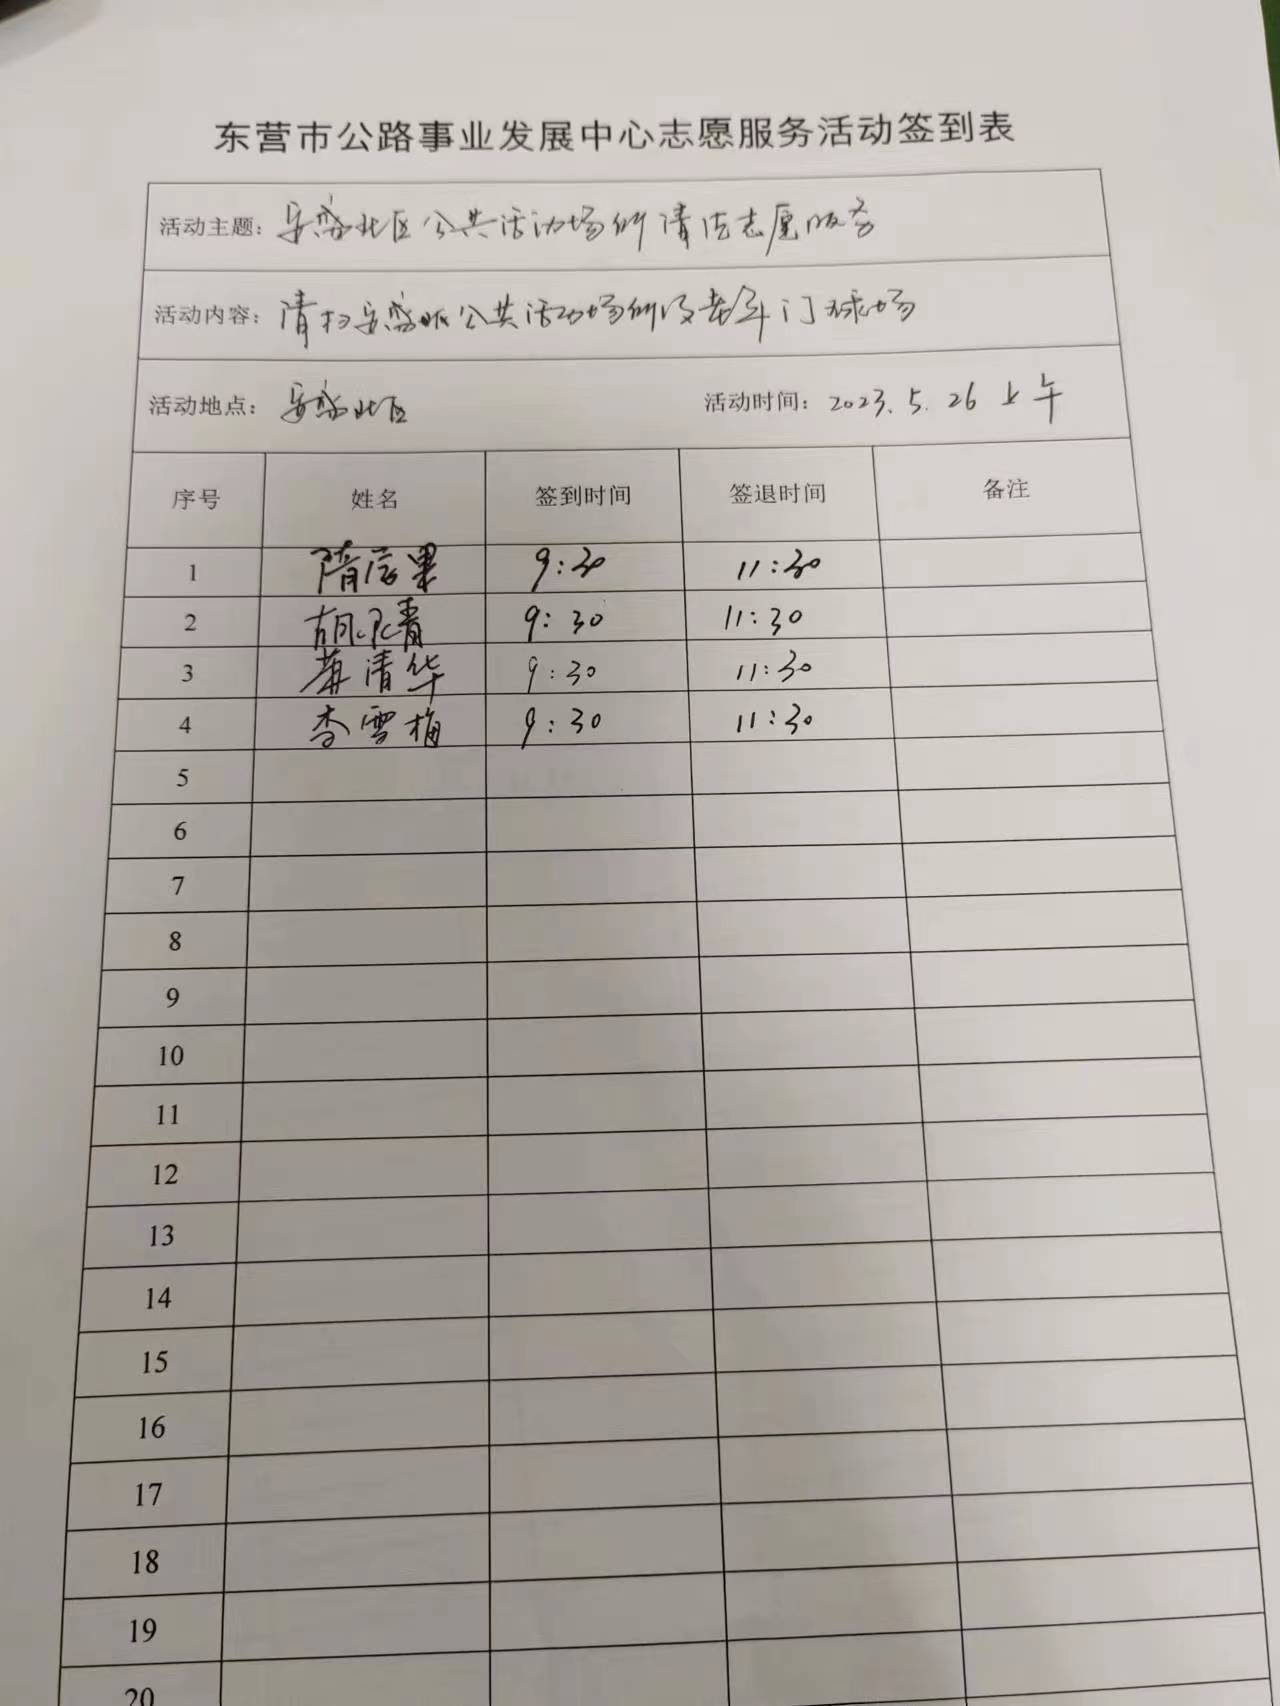 东营市公路事业发展中心志愿服务活动签到表
活动主题: 安盛北区公共活动场所清洁志愿服务
活动内容: 清扫安盛北区公共活动场所及老年门球场
活动地点: 安盛北区 活动时间: 2023.5.26 上午
序号 姓名 签到时间 签退时间 备注
1 隋 9:30 11:30
2 胡 青 9:30 11:30
3 清华 9:30 11:30
4 李雪梅 9:30 11:30
5
6
7
8
9
10
11
12
13
14
15
16
17
18
19
20